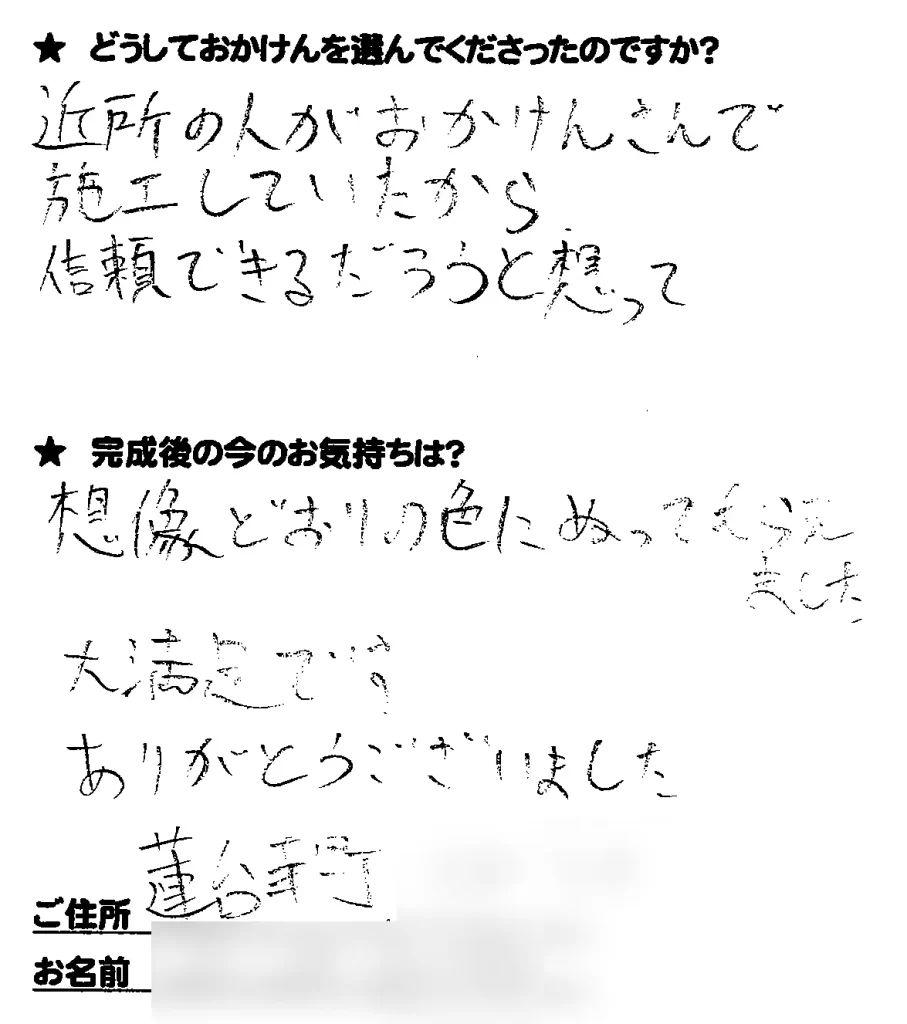 ★ どうしておかけんを選んでくださったのですか?
近所の人がおかけんさんで
施工していたから
信頼できるだろうと想って
★ 完成後の今のお気持ちは?
想像どおりの色にぬってもらえ
ました
大満足です
ありがとうございました
ご住所 蓮台寺町
お名前